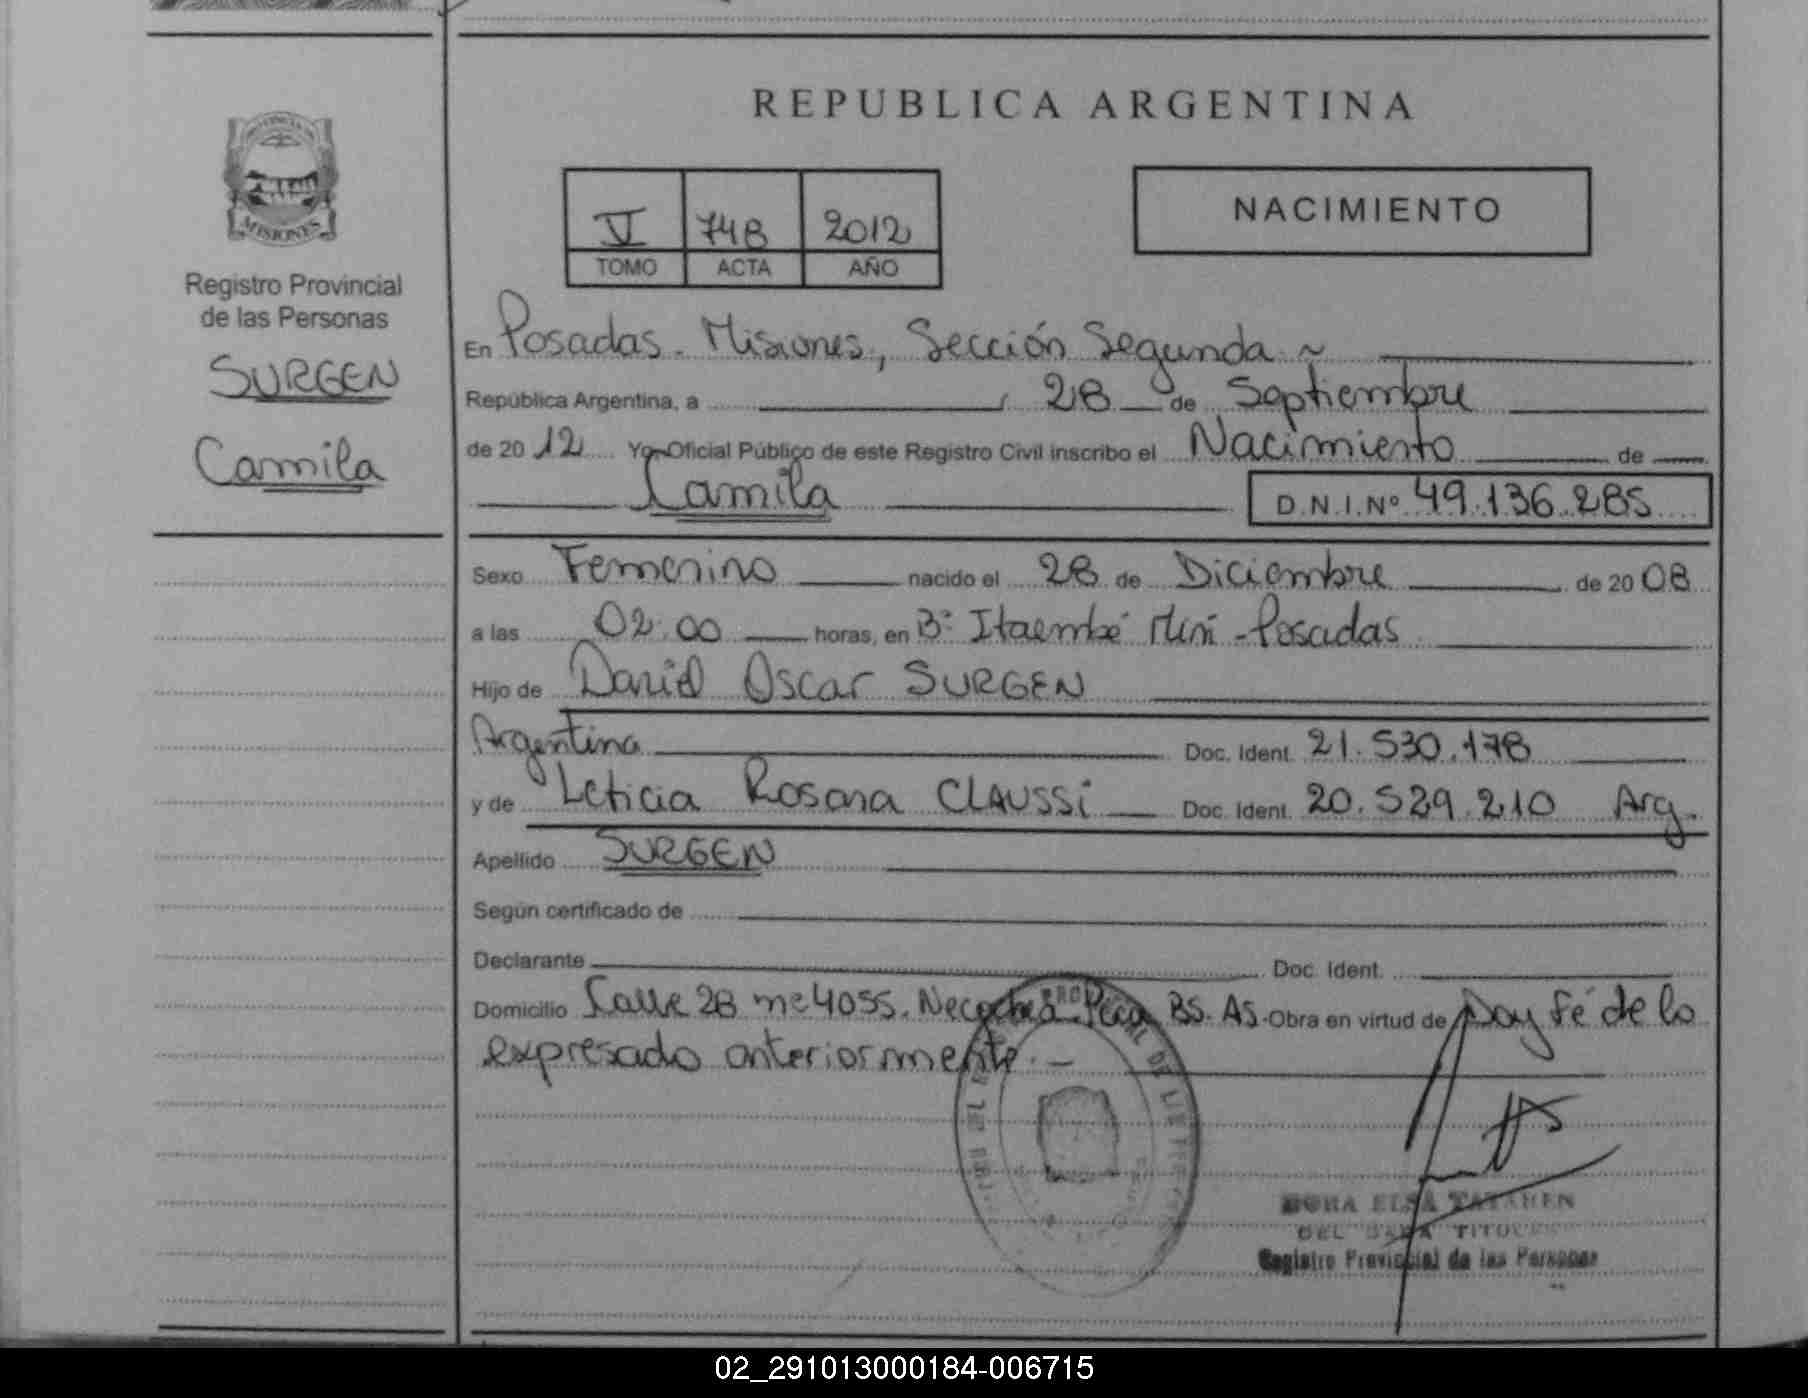 REPUBLICA ARGENTINA
NACIMIENTO
V 748 2012
TOMO ACTA AÑO
MISIONES
Registro Provincial
de las Personas
SURGEN
Camila
En Posadas. Misiones, Sección Segunda
República Argentina, a 28 de Septiembre
de 2012 Yo Oficial Público de este Registro Civil inscribo el Nacimiento de
Camila D.N.I.Nº 49.136.285
Sexo Femenino nacido el 28 de Diciembre de 2008
a las 02:00 horas, en Bº Itaembé Miní - Posadas
Hijo de Daniel Oscar SURGEN
Argentina Doc. Ident. 21.530.178
y de Leticia Rosana CLAUSSi Doc. Ident. 20.529.210 Arg.
Apellido SURGEN
Según certificado de
Declarante Doc. Ident.
Domicilio Calle 28 nº 4055. Necochea. Pcia BS. AS. Obra en virtud de Doy Fé de lo
expresado anteriormente.
ELSA
Registro Provincial de las Personas
02_291013000184-006715